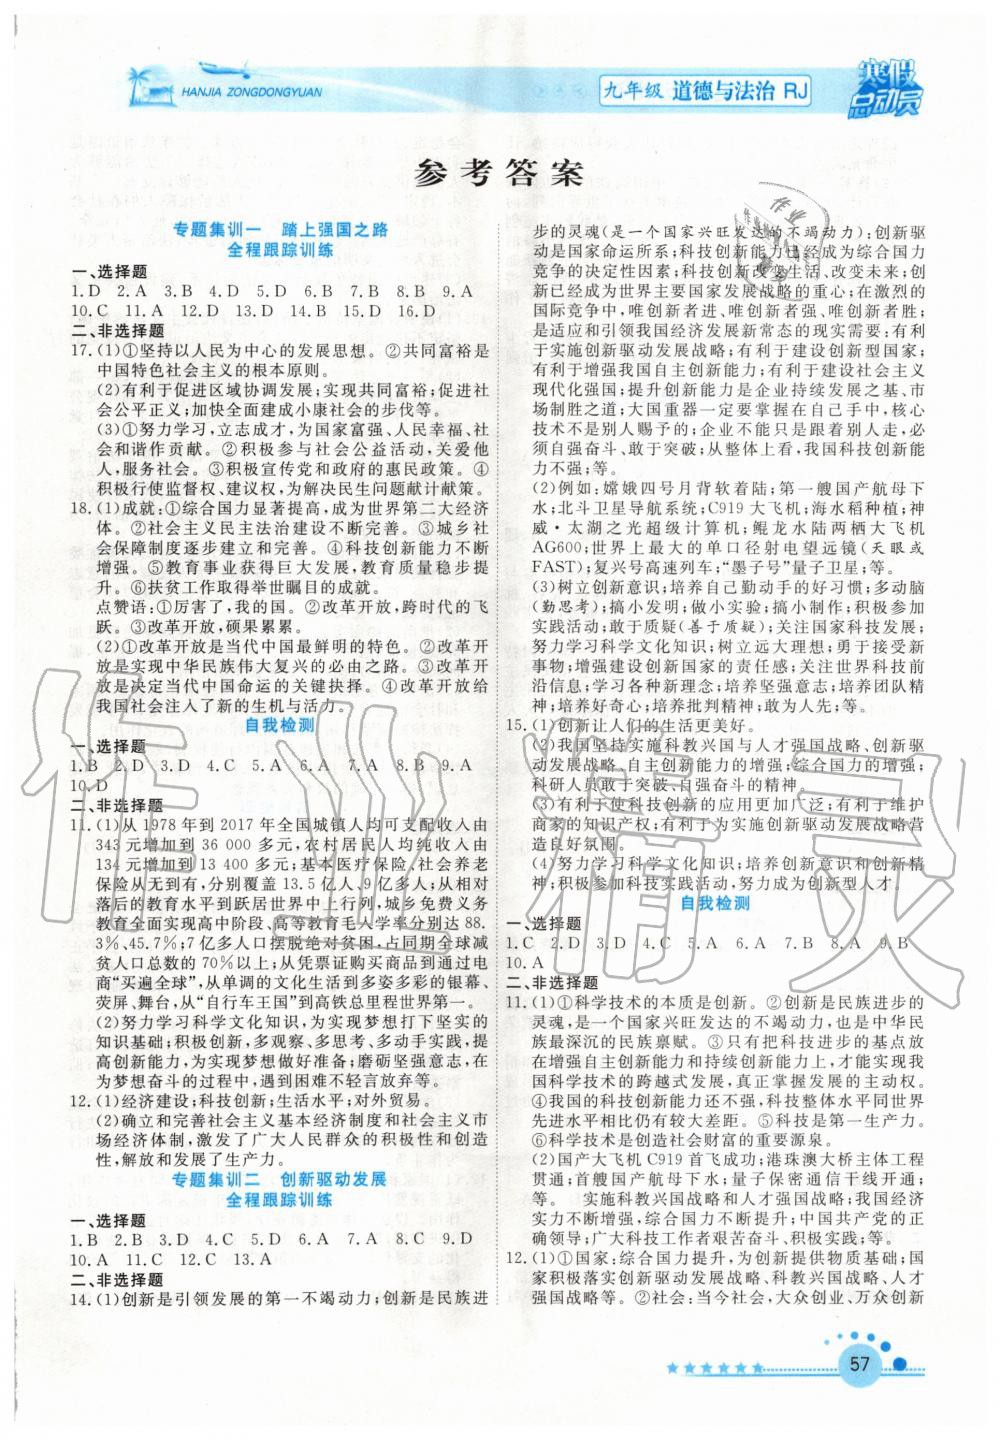 HANJIA ZONGDONGYUAN
九年级 道德与法治 RJ
寒假
总动员
参考答案
专题集训一 踏上强国之路
全程跟踪训练
一、选择题
1.D 2.A 3.B 4.D 5.D 6.D 7.B 8.B 9.A
10.C 11.A 12.D 13.D 14.B 15.D 16.D
二、非选择题
17.(1)①坚持以人民为中心的发展思想。②共同富裕是
中国特色社会主义的根本原则。
(2)有利于促进区域协调发展;实现共同富裕;促进社
会公平正义;加快全面建成小康社会的步伐等。
(3)①努力学习,立志成才,为国家富强、人民幸福、社
会和谐作贡献。②积极参与社会公益活动,关爱他
人,服务社会。③积极宣传党和政府的惠民政策。④
积极行使监督权、建议权,为解决民生问题献计献策。
18.(1)成就:①综合国力显著提高,成为世界第二大经济
体。②社会主义民主法治建设不断完善。③城乡社
会保障制度逐步建立和完善。④科技创新能力不断
增强。⑤教育事业获得巨大发展,教育质量稳步提
升。⑥扶贫工作取得举世瞩目的成就。
点赞语:①厉害了,我的国。②改革开放,跨时代的飞
跃。③改革开放,硕果累累。
(2)①改革开放是当代中国最鲜明的特色。②改革开
放是实现中华民族伟大复兴的必由之路。③改革开
放是决定当代中国命运的关键抉择。④改革开放给
我国社会注入了新的生机与活力。
自我检测
一、选择题
1.B 2.D 3.D 4.C 5.A 6.D 7.A 8.C 9.A
10.D
二、非选择题
11.(1)从 1978 年到 2017 年全国城镇人均可支配收入由
343 元增加到 36 000 多元,农村居民人均纯收入由
134 元增加到 13 400 多元;基本医疗保险、社会养老
保险从无到有,分别覆盖 13.5 亿人、9 亿多人;从相对
落后的教育水平到跃居世界中上行列,城乡免费义务
教育全面实现高中阶段、高等教育毛入学率分别达 88.
3%、45.7%;7 亿多人口摆脱绝对贫困,占同期全球减
贫人口总数的 70%以上;从凭票证购买商品到通过电
商“买遍全球”,从单调的文化生活到多姿多彩的银幕、
荧屏、舞台,从“自行车王国”到高铁总里程世界第一。
(2)努力学习科学文化知识,为实现梦想打下坚实的
知识基础;积极创新,多观察、多思考、多动手实践,提
高创新能力,为实现梦想做好准备;磨砺坚强意志,在
为梦想奋斗的过程中,遇到困难不轻言放弃等。
12.(1)经济建设;科技创新;生活水平;对外贸易。
(2)确立和完善社会主义基本经济制度和社会主义市
场经济体制,激发了广大人民群众的积极性和创造
性,解放和发展了生产力。
专题集训二 创新驱动发展
全程跟踪训练
一、选择题
1.B 2.B 3.D 4.D 5.C 6.D 7.D 8.D 9.A
10.A 11.C 12.C 13.A
二、非选择题
14.(1)创新是引领发展的第一不竭动力;创新是民族进
步的灵魂(是一个国家兴旺发达的不竭动力);创新驱
动是国家命运所系;科技创新能力已经成为综合国力
竞争的决定性因素;科技创新改变生活、改变未来;创
新已经成为世界主要国家发展战略的重心;在激烈的
国际竞争中,唯创新者进、唯创新者强、唯创新者胜;
是适应和引领我国经济发展新常态的现实需要;有利
于实施创新驱动发展战略;有利于建设创新型国家;
有利于提高我国自主创新能力;有利于建设社会主义
现代化强国;提升创新能力是企业持续发展之基、市
场制胜之道;大国重器一定要掌握在自己手中,核心
技术不是别人赐予的;企业不能只是跟着别人走,必
须自强奋斗、敢于突破;从整体上看,我国创新能力
不强;等。
(2)例如:嫦娥四号月背软着陆;第一艘国产航母下
水;北斗卫星导航系统;C919 大飞机;海水稻种植;神
威·太湖之光超级计算机;鲲龙水陆两栖大飞机
AG600;世界上最大的单口径射电望远镜(天眼或
FAST);复兴号高速列车;“墨子号”量子卫星;等。
(3)树立创新意识;培养自己勤动手的好习惯;多动脑
(勤思考);搞小发明;做小实验;搞小制作;积极参加
实践活动;敢于质疑(善于质疑);关注国家科技发展;
努力学习科学文化知识;树立远大理想;勇于接受新
事物;增强建设创新国家的责任感;关注世界科技前
沿信息;学习各种新理念;培养坚强意志;培养团队精
神;培养好奇心;培养批判精神;敢于挑战权威;等。
15.(1)创新让人们的生活更美好。
(2)我国坚持实施科教兴国与人才强国战略、创新驱
动发展战略,自主创新能力的增强;综合国力的增强;
科研人员敢于突破、自强奋斗的精神。
(3)有利于使科技创新的应用更加广泛;有利于维护
商家的知识产权;有利于为实施创新驱动发展战略营
造良好氛围。
(4)努力学习科学文化知识;培养创新意识和创新精
神;积极参加科技实践活动,努力成为创新型人才。
自我检测
一、选择题
1.C 2.D 3.D 4.C 5.A 6.A 7.B 8.A 9.B
10.A
二、非选择题
11.(1)①科学技术的本质是创新。②创新是民族进步的
灵魂,是一个国家兴旺发达的不竭动力,也是中华民
族最深沉的民族禀赋。③只有把科技进步的基点放
在增强自主创新能力和持续创新能力上,才能实现我
国科学技术的跨越式发展,真正掌握发展的主动权。
④我国的科技创新能力还不强,科技整体水平同世界
先进水平相比仍有较大差距。⑤科技是第一生产力。
⑥科学技术是创造社会财富的重要源泉。
(2)国产大飞机 C919 首飞成功;港珠澳大桥主体工程
贯通;首艘国产航母下水;量子保密通信干线开通;
等。 实施科教兴国战略和人才强国战略;我国经济
实力不断增强,综合国力不断提升;中国共产党的正
确领导;广大科技工作者艰苦奋斗、积极实践。等。
12.(1)①国家:综合国力提升,为创新提供物质基础;国
家积极落实创新驱动发展战略、科教兴国战略、人才
强国战略等。②社会:当今社会,大众创业、万众创新
57
作业精灵